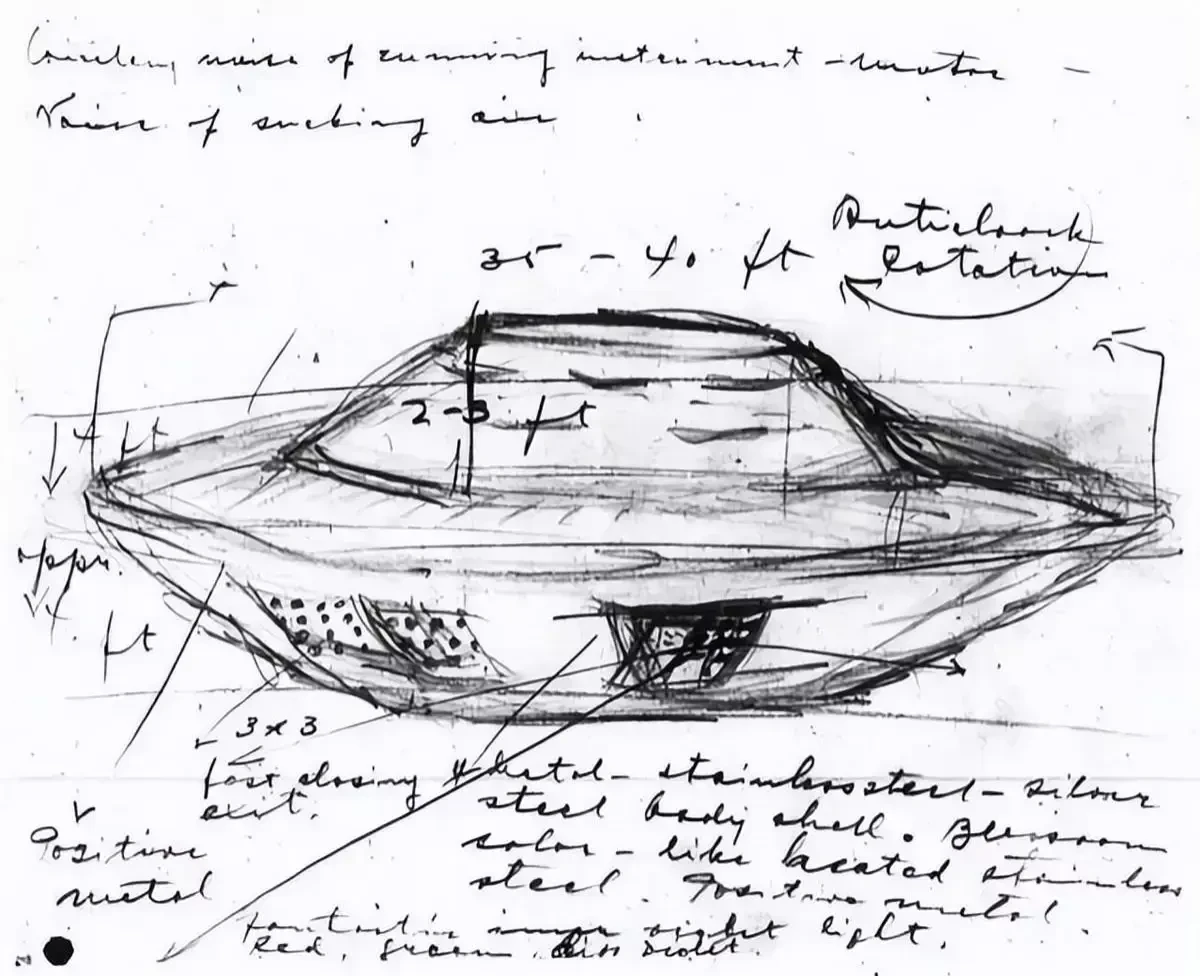 noise of running instrument - motor -
Noise of sucking air
Anticlock
Rotation
35 - 40 ft
2 - 3 ft
4 ft
appr.
4. ft
3 x 3
fast closing
exit.
Metal - stainless steel - silver
steel body shell.
color - like heated stainless
steel. Positive metal
Positive
metal
fantastic inner violet light.
Red, green, violet.